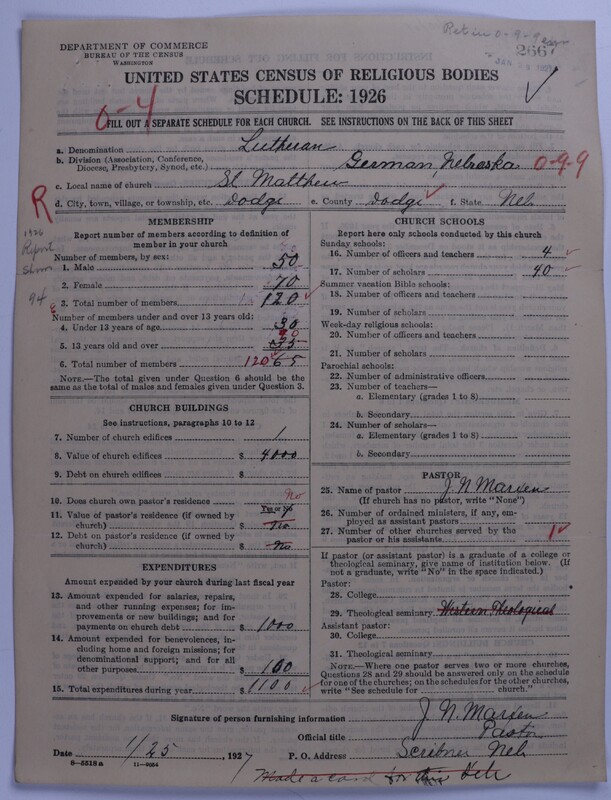 Retin 0-9-9
DEPARTMENT OF COMMERCE
BUREAU OF THE CENSUS
WASHINGTON
2667
UNITED STATES CENSUS OF RELIGIOUS BODIES
SCHEDULE: 1926
0-4
FILL OUT A SEPARATE SCHEDULE FOR EACH CHURCH. SEE INSTRUCTIONS ON THE BACK OF THIS SHEET
a. Denomination Lutheran
b. Division (Association, Conference, Diocese, Presbytery, Synod, etc.) German, Nebraska 0-9-9
c. Local name of church St Matthew
d. City, town, village, or township, etc. Dodge e. County Dodge f. State Neb
R
1926 Report Shows 94
MEMBERSHIP
Report number of members according to definition of
member in your church
Number of members, by sex:
1. Male 50
2. Female 70
3. Total number of members 120
Number of members under and over 13 years old:
4. Under 13 years of age 30
5. 13 years old and over 90 35
6. Total number of members 120 65
NOTE.—The total given under Question 6 should be
same as the total of males and females given under Question 3.
CHURCH BUILDINGS
See instructions, paragraphs 10 to 12
7. Number of church edifices 1
8. Value of church edifices $ 4000
9. Debt on church edifices $
10. Does church own pastor's residence no
Yes or No
11. Value of pastor's residence (if owned by
church) $ No
12. Debt on pastor's residence (if owned by
church) $ No
EXPENDITURES
Amount expended by your church during last fiscal year
13. Amount expended for salaries, repairs,
and other running expenses; for im-
provements or new buildings; and for
payments on church debt $ 1000
14. Amount expended for benevolences, in-
cluding home and foreign missions; for
denominational support; and for all
other purposes $ 100
15. Total expenditures during year $ 1100
CHURCH SCHOOLS
Report here only schools conducted by this church
Sunday schools:
16. Number of officers and teachers 4
17. Number of scholars 40
Summer vacation Bible schools:
18. Number of officers and teachers
19. Number of scholars
Week-day religious schools:
20. Number of officers and teachers
21. Number of scholars
Parochial schools:
22. Number of administrative officers
23. Number of teachers—
a. Elementary (grades 1 to 8)
b. Secondary
24. Number of scholars—
a. Elementary (grades 1 to 8)
b. Secondary
PASTOR
25. Name of pastor J. N. Marxen
(If church has no pastor, write "None")
26. Number of ordained ministers, if any, em-
ployed as assistant pastors
27. Number of other churches served by the
pastor or his assistants 1
If pastor (or assistant pastor) is a graduate of a college or
theological seminary, give name of institution below. (If
not a graduate, write "No" in the space indicated.)
Pastor:
28. College
29. Theological seminary Western Theological
Assistant pastor:
30. College
31. Theological seminary
NOTE.—Where one pastor serves two or more churches,
Questions 28 and 29 should be answered only on the schedule
for one of the churches; on the schedules for the other churches,
write "See schedule for church."
Signature of person furnishing information J. N. Marxen
Official title Pastor
Date 1/25, 1927 P. O. Address Scribner Neb
8-5518a 11-9024
Made a card for this